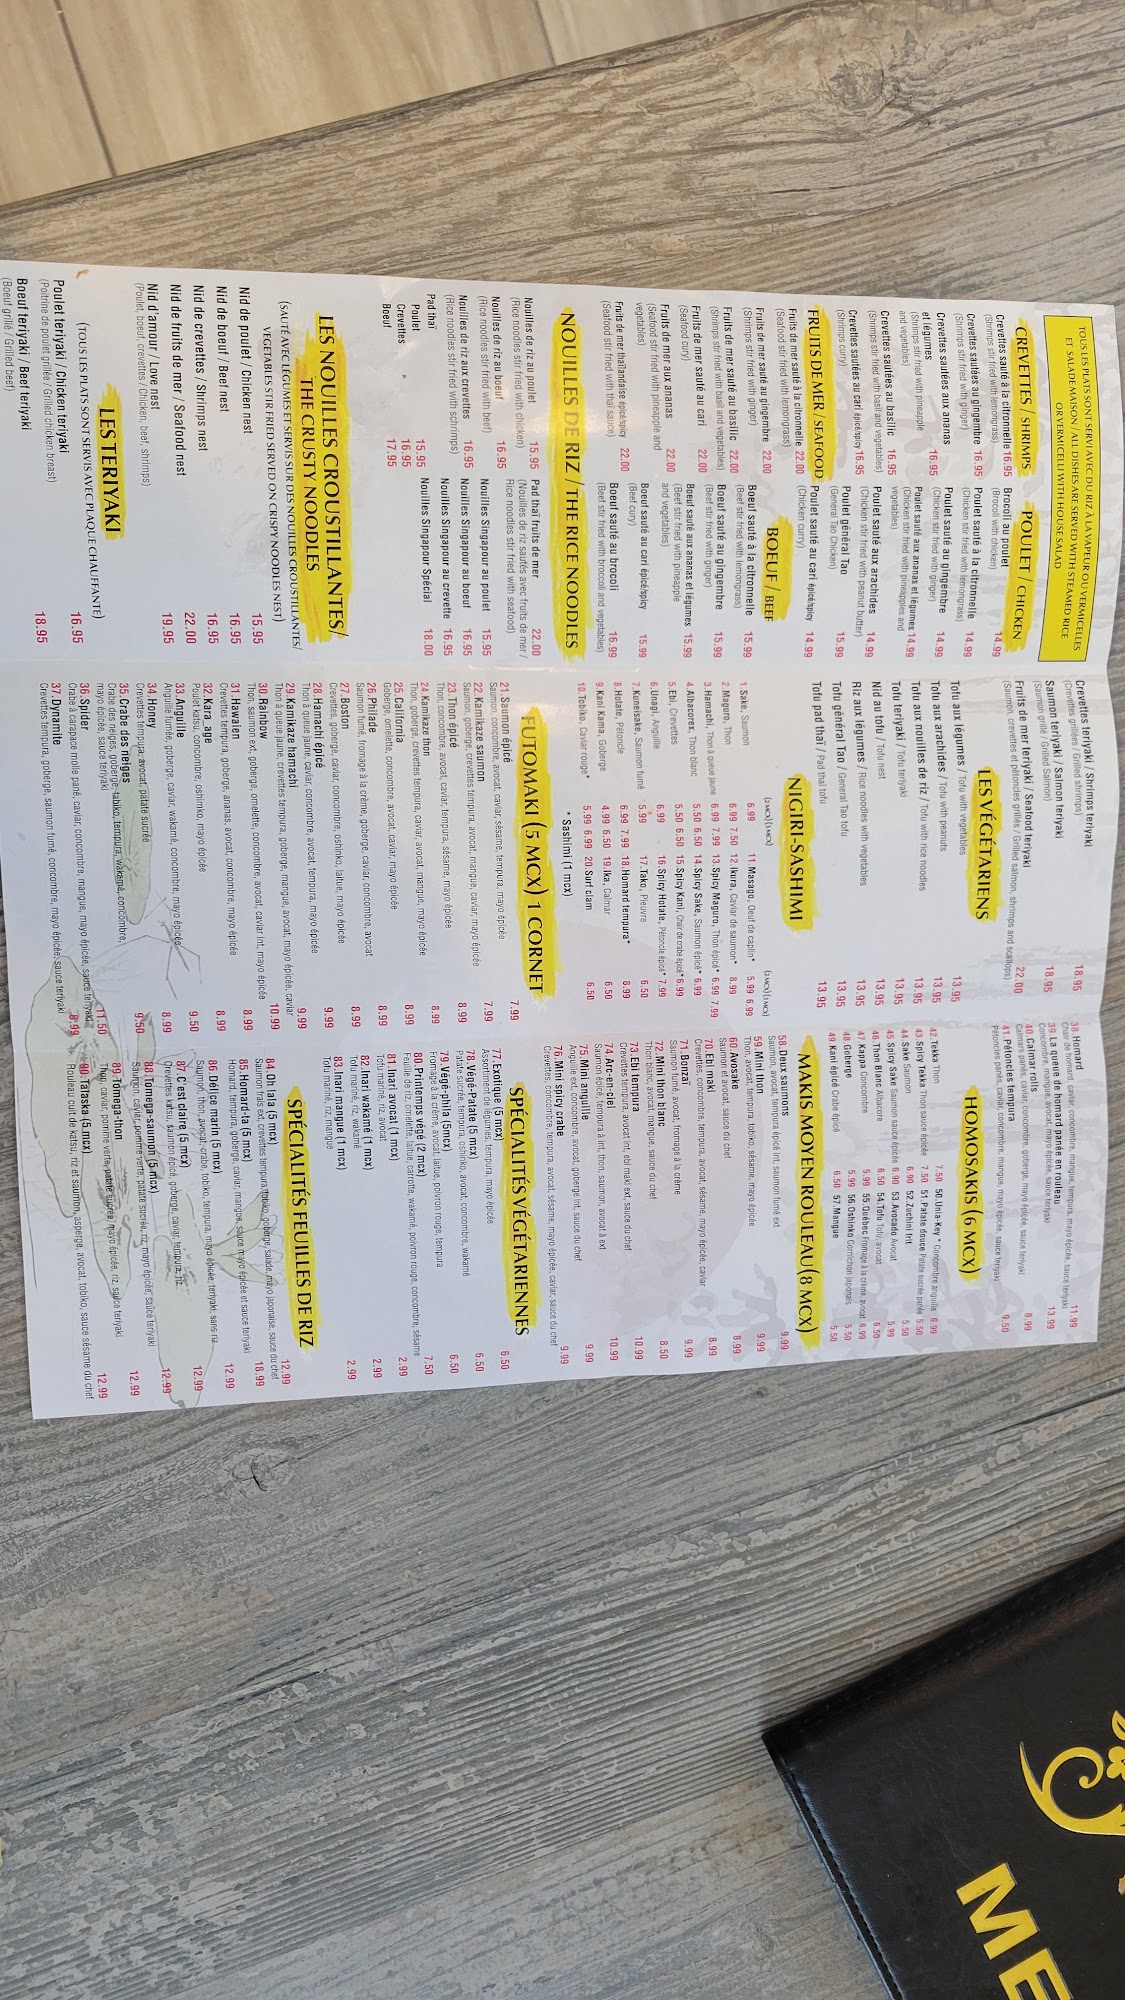 TOUS LES PLATS SONT SERVI AVEC DU RIZ À LA VAPEUR OU VERMICELLES
ET SALADE MAISON / ALL DISHES ARE SERVED WITH STEAMED RICE
OR VERMICELLI WITH HOUSE SALAD
CREVETTES / SHRIMPS
Crevettes sauté à la citronnelle 16.95
(Shrimps stir fried with lemongrass)
Crevettes sautées au gingembre 16.95
(Shrimps stir fried with ginger)
Crevettes sautées aux ananas
et légumes 16.95
(Shrimps stir fried with pineapple
and vegetables)
Crevettes sautées au basilic 16.95
(Shrimps stir fried with basil and vegetables)
Crevettes sautées au cari épicé/spicy 16.95
(Shrimps curry)
FRUITS DE MER / SEAFOOD
Fruits de mer sauté à la citronnelle 22.00
(Seafood stir fried with lemongrass)
Fruits de mer sauté au gingembre 22.00
(Shrimps stir fried with ginger)
Fruits de mer sauté au basilic 22.00
(Shrimps stir fried with basil and vegetables)
Fruits de mer sauté au cari 22.00
(Seafood curry)
Fruits de mer aux ananas 22.00
(Seafood stir fried with pineapple and
vegetables)
Fruits de mer thaïlandaise épicé/spicy 22.00
(Seafood stir fried with thaï sauce)
POULET / CHICKEN
Brocoli au poulet 14.99
(Brocoli with chicken)
Poulet sauté à la citronnelle 14.99
(Chicken stir fried with lemongrass)
Poulet sauté au gingembre 14.99
(Chicken stir fried with ginger)
Poulet sauté aux ananas et légumes 14.99
(Chicken stir fried with pineapples and
vegetables)
Poulet sauté aux arachides 14.99
(Chicken stir fried with peanut butter)
Poulet général Tao 15.99
(General Tao Chicken)
Poulet sauté au cari épicé/spicy 14.99
(Chicken curry)
BOEUF / BEEF
Boeuf sauté à la citronnelle 15.99
(Beef stir fried with lemongrass)
Boeuf sauté au gingembre 15.99
(Beef stir fried with ginger)
Boeuf sauté aux ananas et légumes 15.99
(Beef stir fried with pineapple
and vegetables)
Boeuf sauté au cari épicé/spicy 15.99
(Beef curry)
Boeuf sauté au brocoli 16.99
(Beef stir fried with broccoli and vegetables)
NOUILLES DE RIZ / THE RICE NOODLES
Nouilles de riz au poulet 15.95
(Rice noodles stir fried with chicken)
Nouilles de riz au boeuf 16.95
(Rice noodles stir fried with beef)
Nouilles de riz aux crevettes 16.95
(Rice noodles stir fried with schrimps)
Pad thaï
Poulet 15.95
Crevettes 16.95
Boeuf 17.95
Pad thaï fruits de mer 22.00
(Nouilles de riz sautés avec fruits de mer /
Rice noodles stir fried with seafood)
Nouilles Singapour au poulet 15.95
Nouilles Singapour au boeuf 16.95
Nouilles Singapour au crevette 16.95
Nouilles Singapour Spécial 18.00
LES NOUILLES CROUSTILLANTES/
THE CRUSTY NOODLES
(SAUTÉ AVEC LÉGUMES ET SERVIS SUR DES NOUILLES CROUSTILLANTES/
VEGETABLES STIR FRIED SERVED ON CRISPY NOODLES NEST)
Nid de poulet / Chicken nest 15.95
Nid de boeuf / Beef nest 16.95
Nid de crevettes / Shrimps nest 16.95
Nid de fruits de mer / Seafood nest 22.00
Nid d'amour / Love nest 19.95
(Poulet, boeuf, crevettes / Chicken, beef, shrimps)
LES TERIYAKI
(TOUS LES PLATS SONT SERVIS AVEC PLAQUE CHAUFFANTE)
Poulet teriyaki / Chicken teriyaki 16.95
(Poitrine de poulet grillée / Grilled chicken breast)
Boeuf teriyaki / Beef teriyaki 18.95
(Boeuf grillé / Grilled beef)
Crevettes teriyaki / Shrimps teriyaki 18.95
(Crevettes grillées / Grilled shrimps)
Saumon teriyaki / Salmon teriyaki 18.95
(Saumon grillé / Grilled Salmon)
Fruits de mer teriyaki / Seafood teriyaki 22.00
(Saumon, crevettes et pétoncles grillés / Grilled salmon, shrimps and scallops)
LES VÉGÉTARIENS
Tofu aux légumes / Tofu with vegetables 13.95
Tofu aux arachides / Tofu with peanuts 13.95
Tofu aux nouilles de riz / Tofu with rice noodles 13.95
Tofu teriyaki / Tofu teriyaki 13.95
Nid au tofu / Tofu nest 13.95
Riz aux légumes / Rice noodles with vegetables 13.95
Tofu général Tao / General Tao tofu 13.95
Tofu pad thaï / Pad thaï tofu 13.95
NIGIRI-SASHIMI
(2 MCX) (3 MCX)
1. Sake, Saumon 6.99
2. Maguro, Thon 6.99 7.50
3. Hamachi, Thon à queue jaune 6.99 7.99
4. Albacorex, Thon blanc 5.50 6.50
5. Ebi, Crevettes 5.50 6.50
6. Unagi, Anguille 6.99
7. Kuneisake, Saumon fumé 5.99
8. Hotate, Pétoncle 6.99 7.99
9. Kani Kama, Goberge 4.99 6.50
10. Tobiko, Caviar rouge* 5.99 6.99
(2 MCX) (3 MCX)
11. Masago, Oeuf de caplin* 5.99 6.99
12. Ikura, Caviar de saumon* 8.99
13. Spicy Maguro, Thon épicé* 6.99 7.99
14. Spicy Sake, Saumon épicé* 6.99
15. Spicy Kani, Chair de crabe épicé* 6.99
16. Spicy Hotate, Pétoncle épicé* 7.99
17. Tako, Pieuvre 6.50
18. Homard tempura* 8.99
19. Ika, Calmar 6.50
20. Surf clam 6.50
* Sashimi (1 mcx)
FUTOMAKI (5 MCX) 1 CORNET
21. Saumon épicé 7.99
Saumon, concombre, avocat, caviar, sésame, tempura, mayo épicée
22. Kamikaze saumon 7.99
Saumon, goberge, crevettes tempura, avocat, mangue, caviar, mayo épicée
23. Thon épicé 8.99
Thon, concombre, avocat, caviar, tempura, sésame, mayo épicée
24. Kamikaze thon 8.99
Thon, goberge, crevettes tempura, caviar, avocat, mangue, mayo épicée
25. California 8.99
Goberge, omelette, concombre, avocat, caviar, mayo épicée
26. Philade 8.99
Saumon fumé, fromage à la crème, goberge, caviar, concombre, avocat
27. Boston 9.99
Crevettes, goberge, caviar, concombre, oshinko, laitue, mayo épicée
28. Hamachi épicé 9.99
Thon à queue jaune, caviar, concombre, avocat, tempura, mayo épicée
29. Kamikaze hamachi 9.99
Thon à queue jaune, crevettes tempura, goberge, mangue, avocat, mayo épicée, caviar
30. Rainbow 10.99
Thon, saumon ext, goberge, omelette, concombre, avocat, caviar int, mayo épicée
31. Hawaïen 8.99
Crevettes tempura, goberge, ananas, avocat, concombre, mayo épicée
32. Kara_age 9.50
Poulet katsu, concombre, oshimko, mayo épicée
33. Anguille 8.99
Anguille fumée, goberge, caviar, wakamé, concombre, mayo épicée
34. Honey 9.50
Crevettes tempura, avocat, patate sucrée
35. Crabe des neiges 11.50
Crabe des neiges, goberge, tobiko, tempura, wakamé, concombre,
mayo épicée, sauce teriyaki
36. Spider 8.99
Crabe à carapace molle pané, caviar, concombre, mangue, mayo épicée, sauce teriyaki
37. Dynamite
Crevettes tempura, goberge, saumon fumé, concombre, mayo épicée, sauce teriyaki
38. Homard 11.99
Chair de homard, caviar, concombre, mangue, tempura, mayo épicée, sauce teriyaki
39. La queue de homard panée en rouleau 13.99
Concombre, mangue, avocat, mayo épicée, sauce teriyaki
40. Calmar rolls 8.99
Calmars panés, caviar, concombre, goberge, mayo épicée, sauce teriyaki
41. Pétoncles tempura 9.50
Pétoncles panés, caviar, concombre, mangue, mayo épicée, sauce teriyaki
HOMOSAKIS (6 MCX)
42. Tekka Thon 7.50
43. Spicy Tekka Thon sauce épicée 7.50
44. Sake Saumon 6.90
45. Spicy Sake Saumon sauce épicée 6.90
46. Thon Blanc Albacore 6.50
47. Kappa Concombre 5.99
48. Goberge 5.99
49. Kani épicé Crabe épicé 6.50
50. Unia-Key * Concombre anguille 6.99
51. Patate douce Patate sucrée panée 5.50
52. Zuchini frit 5.50
53. Avocado Avocat 5.99
54. Tofu Tofu, avocat 6.50
55. Québec Fromage à la crème, avocat 6.99
56. Oshinko Cornichon japonais 5.50
57. Mangue 5.50
MAKIS MOYEN ROULEAU (8 MCX)
58. Deux saumons 9.99
Saumon, avocat, tempura épicé int, saumon fumé ext
59. Mini thon 9.99
Thon, avocat, tempura, tobiko, sésame, mayo épicée
60. Avosake 8.99
Saumon épicé et avocat, sauce du chef
70. Ebi maki 8.99
Crevettes, concombre, tempura, avocat, sésame, mayo épicée, caviar
71. Bonzaï 9.99
Saumon fumé, avocat, fromage à la crème
72. Mini thon blanc 8.50
Thon blanc, avocat, mangue, sauce du chef
73. Ebi tempura 10.99
Crevettes tempura, avocat int, ebi maki ext, sauce du chef
74. Arc-en-ciel 10.99
Saumon épicé, tempura à int, thon, saumon, avocat à ext
75. Mini anguille 9.99
Anguille ext, concombre, avocat, goberge int, sauce du chef
76. Mini spicy crabe 9.99
Crevettes, concombre, tempura, avocat, sésame, mayo épicée, caviar, sauce du chef
SPÉCIALITÉS VÉGÉTARIENNES
77. Exotique (5 mcx) 6.50
Assortiment de légumes, tempura, mayo épicée
78. Végé-Patate (5 mcx) 6.50
Patate sucrée, tempura, oshinko, avocat, concombre, wakamé
79. Végé-phila (5mcx) 6.50
Fromage à la crème, avocat, laitue, poivron rouge, tempura
80. Printemps végé (2 mcx) 7.50
Feuille de riz, omelette, laitue, carrotte, wakamé, poivron rouge, concombre, sésame
81. Inari avocat (1 mcx) 2.99
Tofu mariné, riz, avocat
82. Inari wakamé (1 mcx) 2.99
Tofu mariné, riz, wakamé
83. Inari mangue (1 mcx) 2.99
Tofu mariné, riz, mangue
SPÉCIALITÉS FEUILLES DE RIZ
84. Oh lala (5 mcx) 12.99
Saumon frais ext, crevettes tempura, tobiko, goberge, salade, mayo japonaise, sauce du chef
85. Homard-ta (5 mcx) 18.99
Homard, tempura, goberge, caviar, mangue, sauce mayo épicée et sauce teriyaki
86. Délice marin (5 mcx) 12.99
Saumon, thon, avocat, crabe, tobiko, tempura, mayo épicée, teriyaki, sans riz
87. C'est claire (5 mcx) 12.99
Crevettes katsu, saumon épicé, goberge, caviar, tempura, riz
88. Tomega-saumon (5 mcx) 12.99
Saumon, caviar, pomme verte, patate sucrée, riz, mayo épicée, sauce teriyaki
89. Tomega-thon 12.99
Thon, caviar, pomme verte, patate sucrée, mayo épicée, riz, sauce teriyaki
90. Talaska (5 mcx) 12.99
Rouleau cuit de katsu, riz et saumon, asperge, avocat, tobiko, sauce sésame du chef
ME